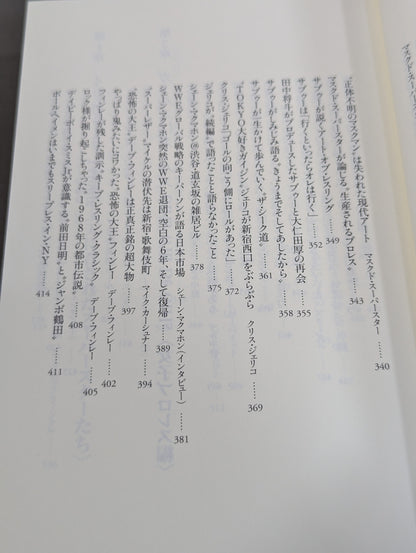 マスクド・スーパースター
“正体不明のマスクマン”は失われた現代アート マスクド・スーパースター …… 340
マスクド・スーパースターが論じる“生産されるプロレス” …… 343
サブゥーが説く“アート・オブ・レスリング” …… 349
サブゥーは「行くといったらオレは行く」 …… 352
田中将斗がプロデュースしたサブゥーと大仁田厚の再会 …… 355
サブゥーがしみじみ語る。「きょうまでそしてあしたから」 …… 358
サブゥーが生かけて歩んでいく“ザ・シーク道” …… 361
“TOKYO大好きガイジン”ジェリコが新宿西口をぶらぶら クリス・ジェリコ …… 369
クリス・ジェリコ「ゴールの向こう側にロールがあった」 …… 372
ジェリコが“続編”で語ったことと語らなかったこと …… 375
シェーン・マクマホン@渋谷・道玄坂の雑居ビル …… 378
WWEグローバル戦略のキーパーソンが語る日本市場 シェーン・マクマホン（インタビュー） …… 381
シェーン・マクマホン突然のWWE退団、空白の6年、そして復帰 …… 389
“スーパーレザー”マイケルの潜伏先は新宿・歌舞伎町 マイク・カーシュナー …… 394
“恐怖の大王”デーブ・フィンレーは正真正銘の超大物 …… 397
やっぱり鬼みたいにコワかった。“恐怖の大王”フィンレー デーブ・フィンレー …… 402
フィンレーが残した演示“キープ・レスリング・クラシック” デーブ・フィンレー …… 405
ロック様が掘り起こしちゃった。“1968年の都市伝説” …… 408
デイビーボーイ・スミスJr.が意識する“前田日明”と“ジャンボ鶴田” …… 411
ポール・ヘイメンはいまでもスリープレス・イン・NY …… 414